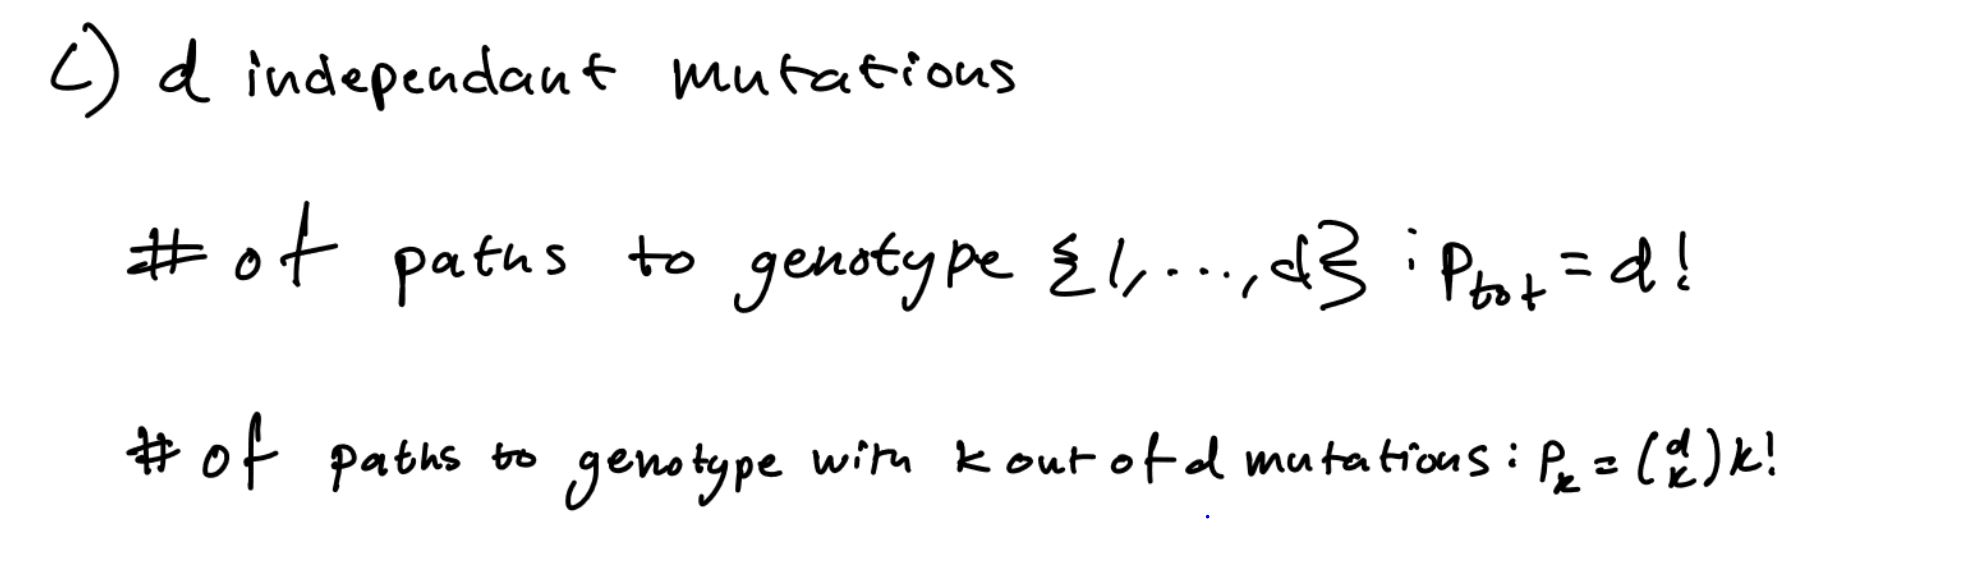 c) d independant mutations
# of paths to genotype {1,...,d} : P_tot = d!
# of paths to genotype with k out of d mutations : P_k = (d k) k!